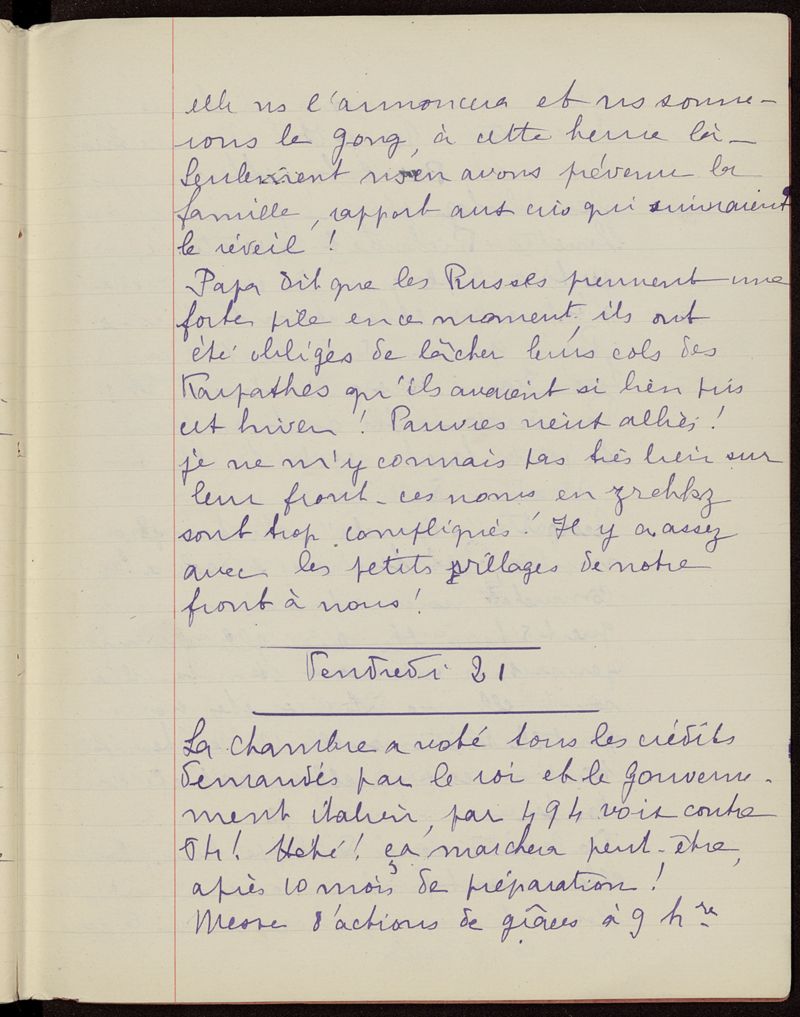 elle ns l'annoncera et ns sonne-
rons le gong, à cette heure là -
Seulement nsen avons prévenu la
famille, rapport aux cris qui suivraient
le réveil !
Papa dit que les Russes prennent une
forte pile en ce moment, ils ont
été obligés de lâcher leurs cols des
Karpathes qu'ils avaient si bien pris
cet hiver ! Pauvres vieux alliés !
je ne m'y connais pas très bien sur
leur front - ces noms en zrchkz
sont trop compliqués ! Il y a assez
avec les petits villages de notre
front à nous !
Vendredi 21
La Chambre a voté tous les crédits
demandés par le roi et le Gouverne-
ment italien, par 494 voix contre
54 ! Hé hé ! ça marchera peut-être,
après 10 mois de préparation !
Messe d'actions de grâces à 9 hres